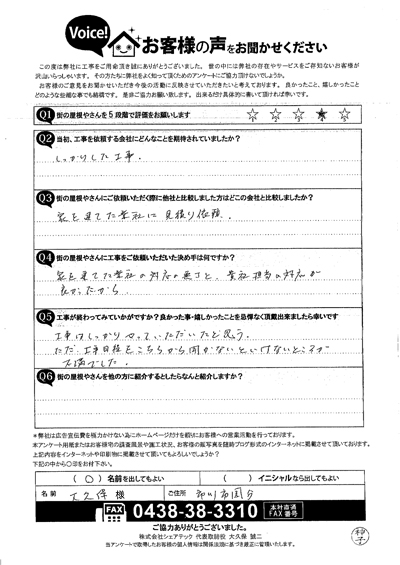 Voice!
お客様の声をお聞かせください
この度は弊社に工事をご用命頂き誠にありがとうございました。世の中には弊社の存在やサービスをご存知ないお客様が
沢山いらっしゃいます。その方たちに弊社をよく知って頂くためのアンケートにご協力頂けないでしょうか。
お客様のご意見をお聞かせいただき今後の活動に反映させていただきたいと考えております。良かったこと、嬉しかったこと
どのような些細な事でも結構です。是非ご協力お願い致します。出来るだけ具体的に書いて頂ければ幸いです。
Q1 街の屋根やさんを5段階で評価をお願いします ☆ ☆ ☆ ★ ☆
Q2 当初、工事を依頼する会社にどんなことを期待されていましたか?
しっかりした工事。
Q3 街の屋根やさんにご依頼いただく際に他社と比較しました方はどこの会社と比較しましたか?
家を建てた業社に見積り依頼。
Q4 街の屋根やさんに工事をご依頼いただいた決め手は何ですか?
家を建てた業社の対応の悪さと、貴社担当の対応が
良かったから。
Q5 工事が終わってみていかがですか?良かった事・嬉しかったことを忌憚なく頂戴出来ましたら幸いです
工事はしっかりやっていただいたと思う。
ただ、工事日程をこちらから聞かないといけないところが
不満でした。
Q6 街の屋根やさんを他の方に紹介するとしたらなんと紹介しますか?
※弊社は広告宣伝費を極力かけない為にホームページだけを頼りにお客様への営業活動を行っております。
本アンケート用紙またはお客様宅の調査風景や施工状況、お客様の顔写真を随時ブログ形式のインターネットに掲載させて頂いております。
上記内容をインターネットや印刷物に掲載させて頂いてもよろしいでしょうか?
下記の中から〇印をお付け下さい。
( 〇 ) 名前を出してもよい ( ) イニシャルなら出してもよい
名前 大久保 様 ご住所 市川市国分
FAX 0438-38-3310 本社直通 FAX番号
ご協力ありがとうございました。
株式会社シェアテック 代表取締役 大久保 誠二
当アンケートで取得したお客様の個人情報は関係法規に基づき厳正に管理いたします。